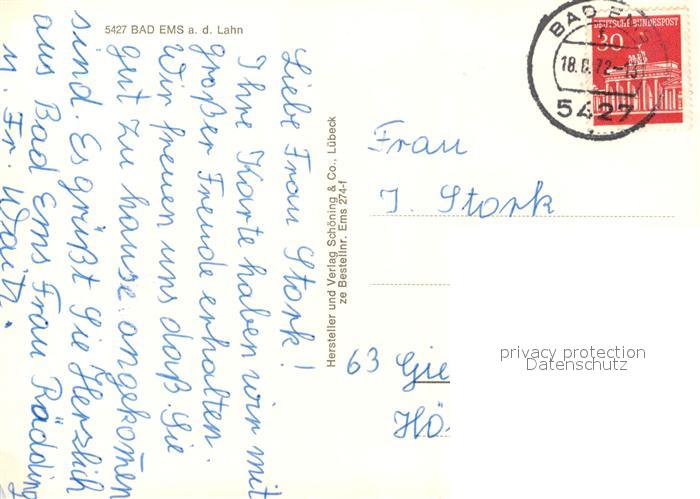 5427 BAD EMS a. d. Lahn
Liebe Frau Stork!
Ihre Karte haben wir mit
großer Freude erhalten.
Wir freuen uns daß Sie
gut zu hause angekomen
sind. Es grüßt Sie Herzlich
aus Bad Ems Frau Rädding
u. Fr. Waitz.
Hersteller und Verlag Schöning & Co., Lübeck
ze Bestellnr. Ems 274-f
DEUTSCHE BUNDESPOST
30
BAD EMS
18. 72-13
5427
Frau
J. Stork
63 Gie
Hö
privacy protection
Datenschutz